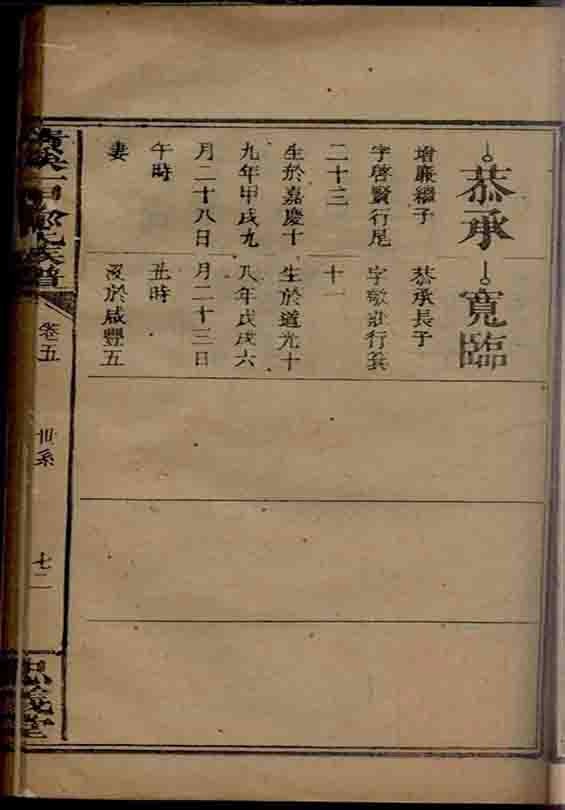 恭承
增廉繼子
字啓賢行尾
二十三
生於嘉慶十
九年甲戌九
月二十八日
午時
妻
寬臨
恭承長子
字敬壯行箕
十一
生於道光十
八年戊戌六
月二十三日
丑時
沒於咸豐五
氏族譜
卷五
世系
七二
忠義堂